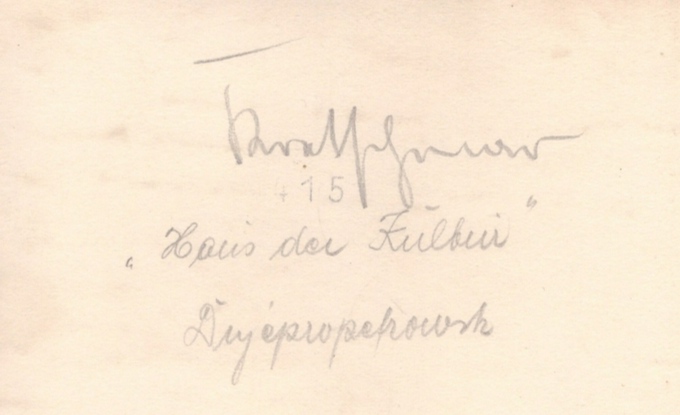 Kretschmar
+15
„Haus der Kultur"
Dnjepropetrowsk